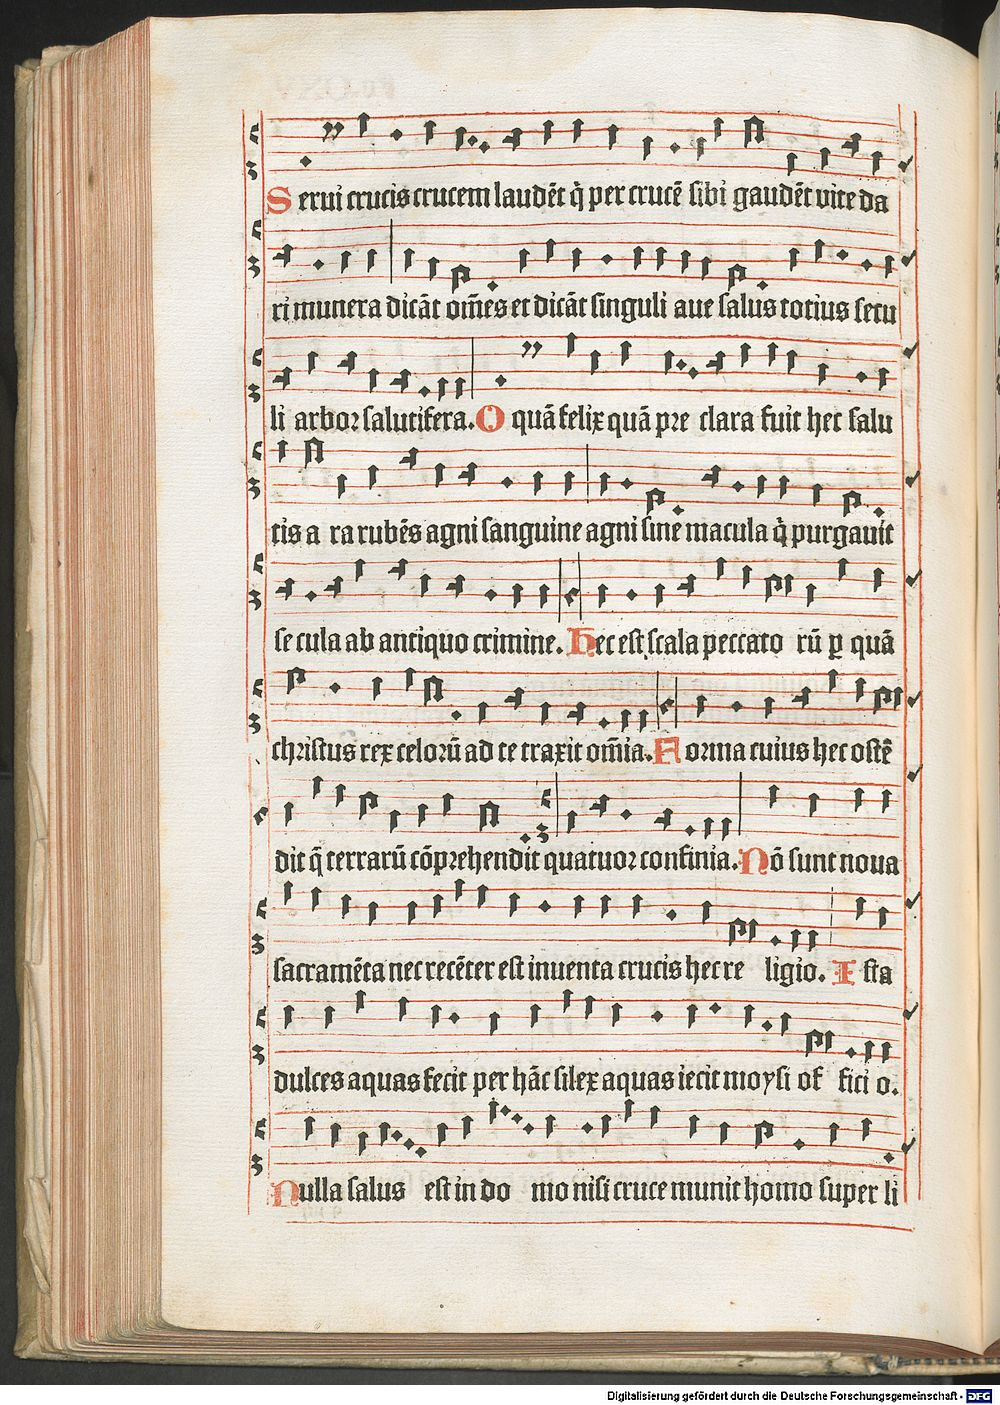 Serui crucis crucem laudēt q̇ per crucē sibi gaudēt vite da
ri munera dicāt om̄es et dicāt singuli aue salus totius secu
li arbor salutifera. O quā felix quā pre clara fuit hec salu
tis a ra rubēs agni sanguine agni sine macula q̇ purgauit
se cula ab antiquo crimine. Hec est scala peccato rū ꝑ quā
christus rex celorū ad te traxit om̄ia. Forma cuius hec ostē
dit q̄ terrarū cōprehendit quatuor confinia. Nō sunt noua
sacramēta nec recēter est inuenta crucis hec re ligio. Ista
dulces aquas fecit per hāc silex aquas iecit moysi of fici o.
Nulla salus est in do mo nisi cruce munit homo super li
Digitalisierung gefördert durch die Deutsche Forschungsgemeinschaft - DFG